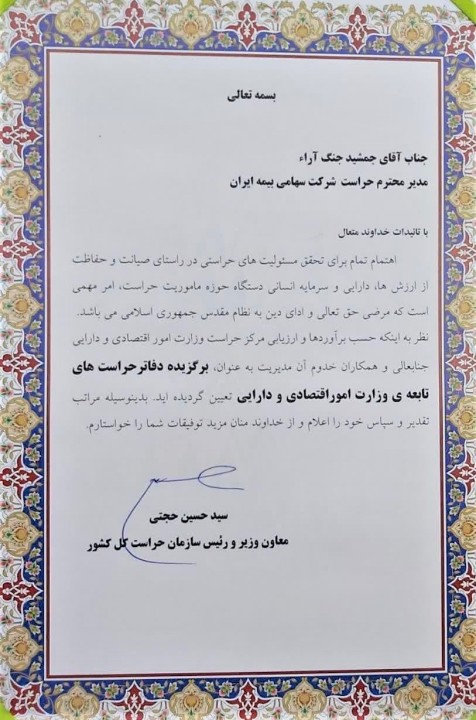 بسمه تعالی
جناب آقای جمشید جنگ آراء
مدیر محترم حراست شرکت سهامی بیمه ایران
با تائیدات خداوند متعال
اهتمام تمام برای تحقق مسئولیت های حراستی در راستای صیانت و حفاظت
از ارزش ها، دارایی و سرمایه انسانی دستگاه حوزه ماموریت حراست، امر مهمی
است که مرضی حق تعالی و ادای دین به نظام مقدس جمهوری اسلامی می باشد.
نظر به اینکه حسب برآوردها و ارزیابی مرکز حراست وزارت امور اقتصادی و دارایی
جنابعالی و همکاران خدوم آن مدیریت به عنوان، برگزیده دفاتر حراست های
تابعه ی وزارت امور اقتصادی و دارایی تعیین گردیده اید. بدینوسیله مراتب
تقدیر و سپاس خود را اعلام و از خداوند منان مزید توفیقات شما را خواستارم.
سید حسین حجتی
معاون وزیر و رئیس سازمان حراست کل کشور